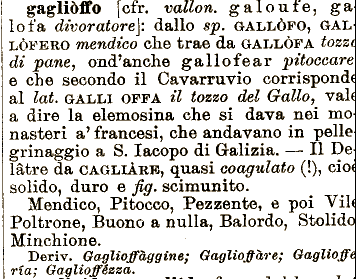 gagliòffo [cfr. vallon. galoufe, ga-
lofa divoratore]: dallo sp. GALLÒFO, GAL-
LÒFERO mendico che trae da GALLÒFA tozzo
di pane, ond'anche gallofear pitoccare
e che secondo il Cavarruvio corrisponde
al lat. GALLI OFFA il tozzo del Gallo, vale
a dire la elemosina che si dava nei mo-
nasteri a' francesi, che andavano in pelle-
grinaggio a S. Iacopo di Galizia. — Il De-
lâtre da CAGLIÀRE, quasi coagulato (!), cioè
solido, duro e fig. scimunito.
Mendico, Pitocco, Pezzente, e poi Vile
Poltrone, Buono a nulla, Balordo, Stolido
Minchione.
Deriv. Gaglioffàggine; Gaglioffàre; Gaglioffe-
ría; Gaglioffézza.